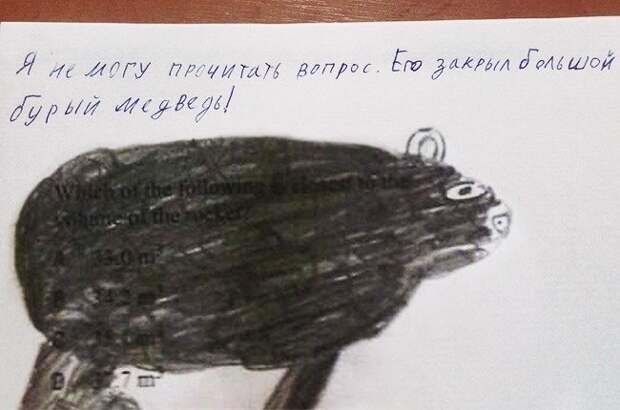 Я не могу прочитать вопрос. Его закрыл большой
бурый медведь!
Which of the following is closest to the
volume of the rocket?
A 33.0 m³
B 34.2 m³
C
D